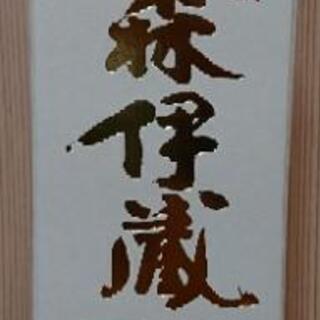 森伊蔵